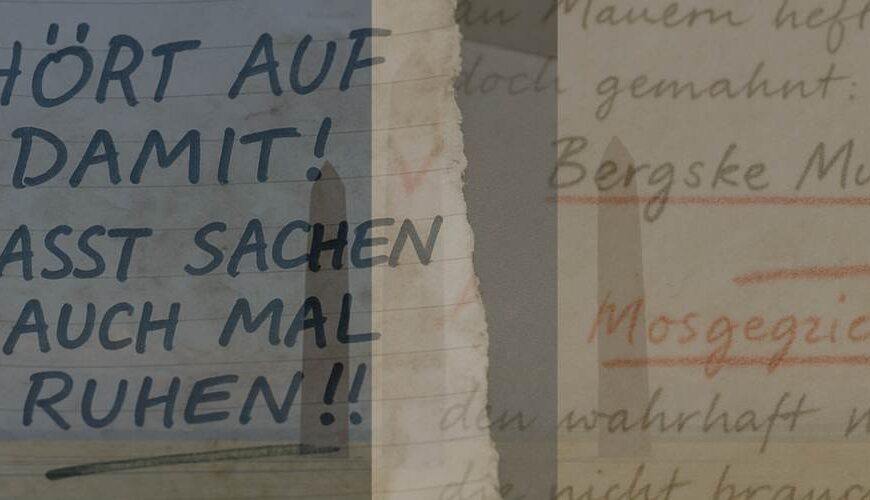 HÖRT AUF
DAMIT!
ASST SACHEN
AUCH MAL
RUHEN!!
an Mauern heft
doch gemahnt:
Bergske Mu
Mosgegrie
den wahrhaft n
die nicht brauc